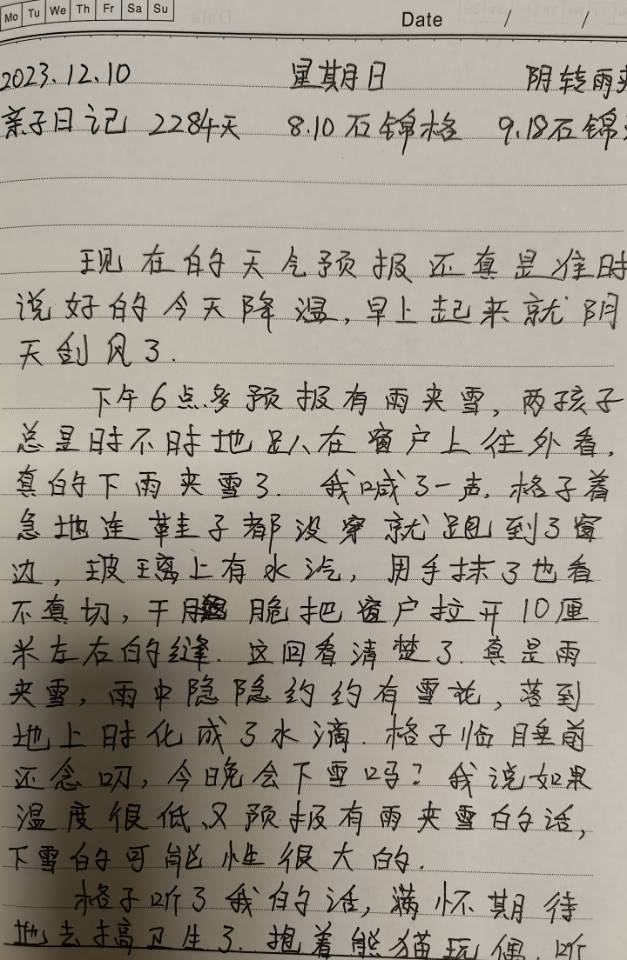 Mo Tu We Th Fr Sa Su
Date / /
2023.12.10 星期日 阴转雨夹
亲子日记 2284天 8.10石锦格 9.18石锦
现在的天气预报还真是准时
说好的今天降温,早上起来就阴
天刮风了.
下午6点多预报有雨夹雪,两孩子
总是时不时地趴在窗户上往外看.
真的下雨夹雪了.我喊了一声.格子着
急地连鞋子都没穿就跑到了窗
边,玻璃上有水汽,用手抹了也看
不真切,干脆把窗户拉开10厘
米左右的缝.这回看清楚了.真是雨
夹雪,雨中隐隐约约有雪花,落到
地上时化成了水滴.格子临睡前
还念叨,今晚会下雪吗?我说如果
温度很低又预报有雨夹雪的话,
下雪的可能性很大的.
格子听了我的话,满怀期待
地去搞卫生了.抱着熊猫玩偶,听